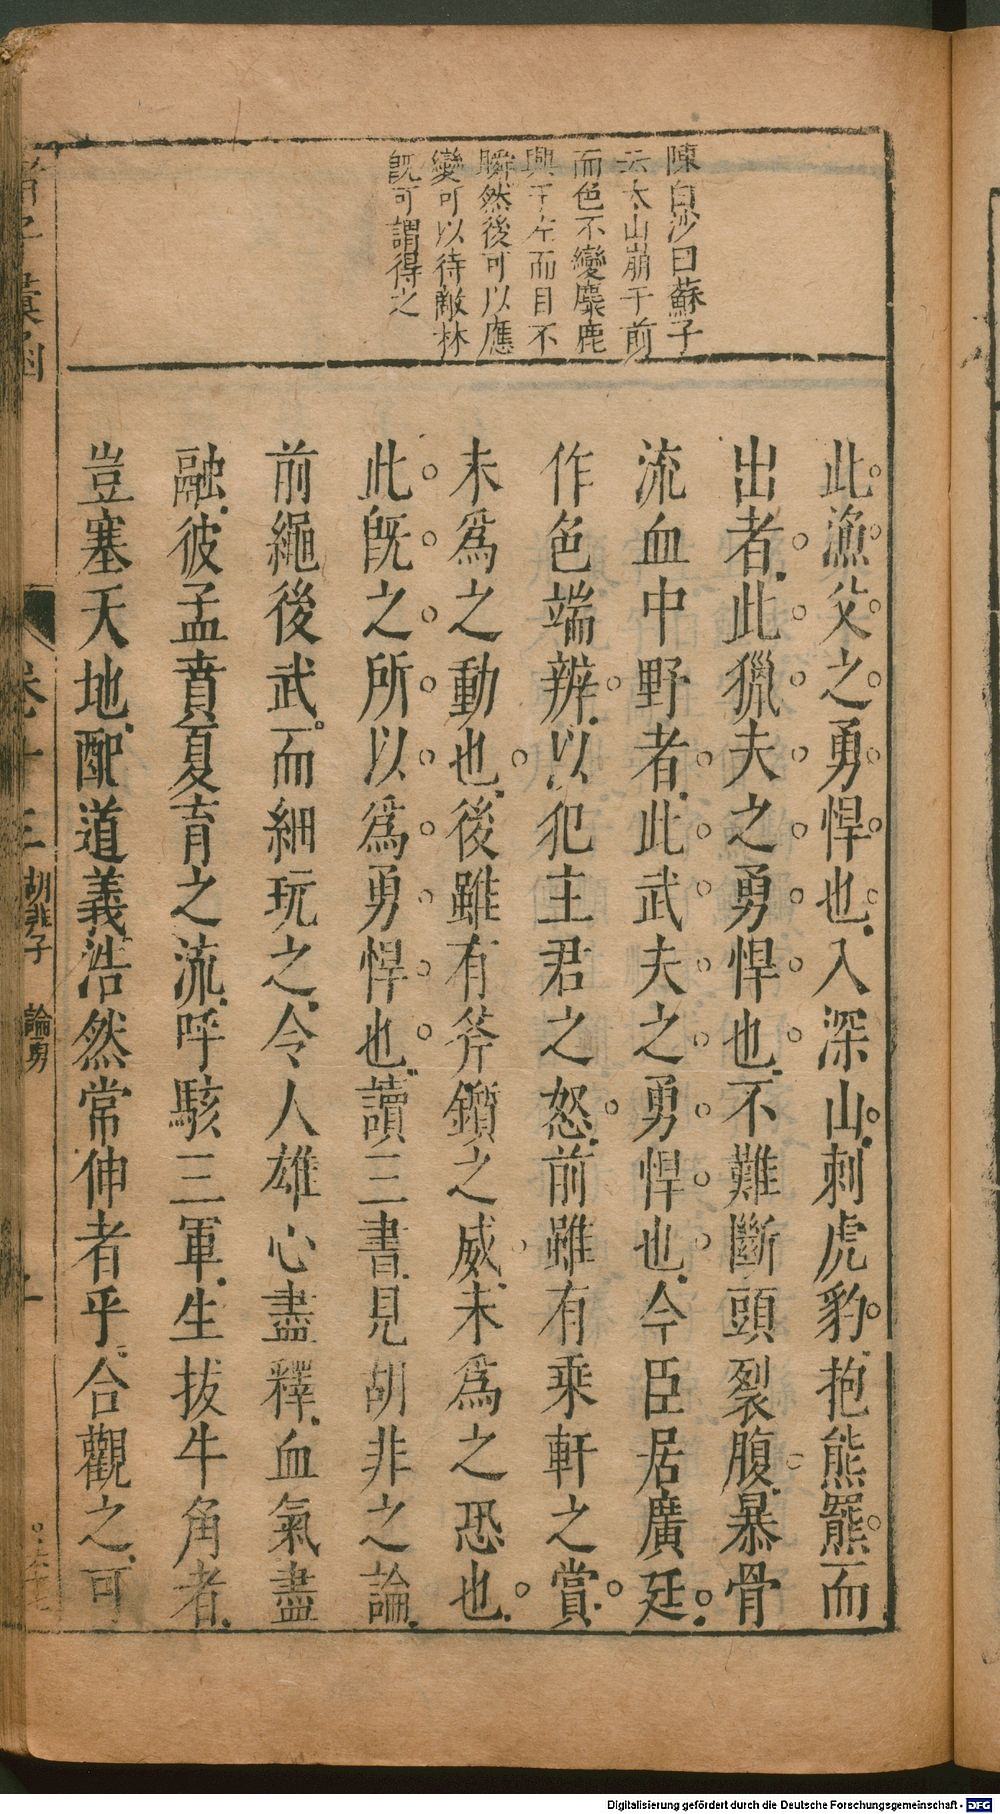 陳白沙曰蘇子
云太山崩于前
而色不變麋鹿
興于左而目不
瞬然後可以應
變可以待敵林
旣可謂得之
此漁父之勇悍也入深山刺虎豹抱熊羆而
出者此獵夫之勇悍也不難斷頭裂腹暴骨
流血中野者此武夫之勇悍也今臣居廣廷
作色端辨以犯主君之怒前雖有乘軒之賞
未爲之動也後雖有斧鑕之威未爲之恐也
此旣之所以爲勇悍也讀三書見胡非之論
前繩後武而細玩之令人雄心盡釋血氣盡
融彼孟賁夏育之流呼駭三軍生拔牛角者
豈塞天地配道義浩然常伸者乎合觀之可
諸子彙函
卷十三 胡非子 論勇
Digitalisierung gefördert durch die Deutsche Forschungsgemeinschaft - DFG